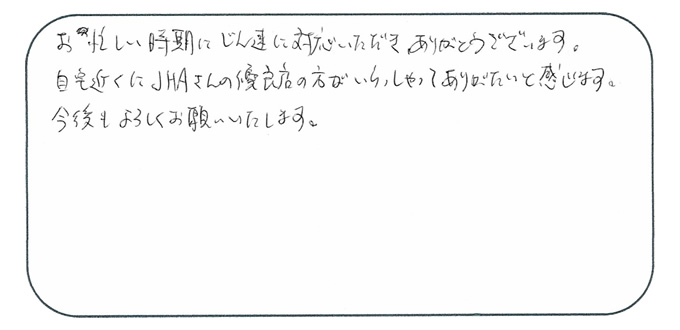 お忙しい時期にじん速に対応いただき、ありがとうございます。
自宅近くにJHAさんの優良店の方がいらっしゃってありがたいと感じます。
今後もよろしくお願いいたします。